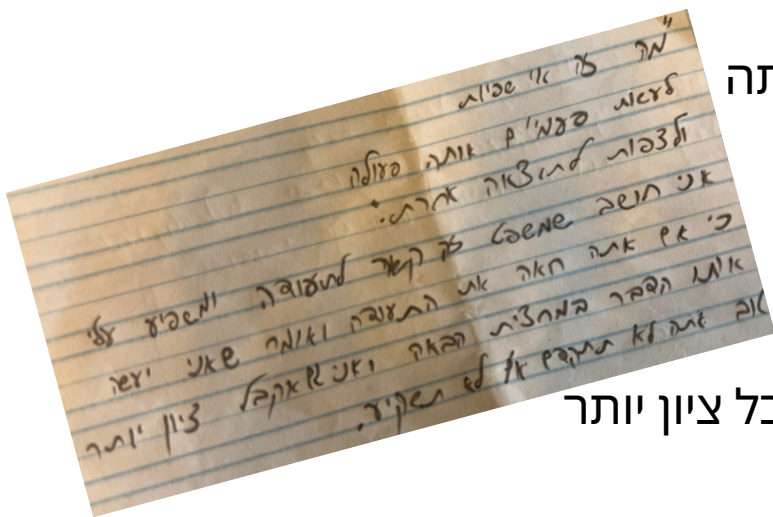 "מה זה אי שפיות
לעשות פעמיים אותה פעולה
ולצפות לתוצאה אחרת.
אני חושב שמשפט זה קשור לתעודה ומשפיע עלי
כי אם אתה רואה את התעודה ואומר שאני יעשה
אותו הדבר במחצית הבאה ואני אקבל ציון יותר
טוב אתה לא תתקדם אם לא תשקיע.
תה
כל ציון יותר